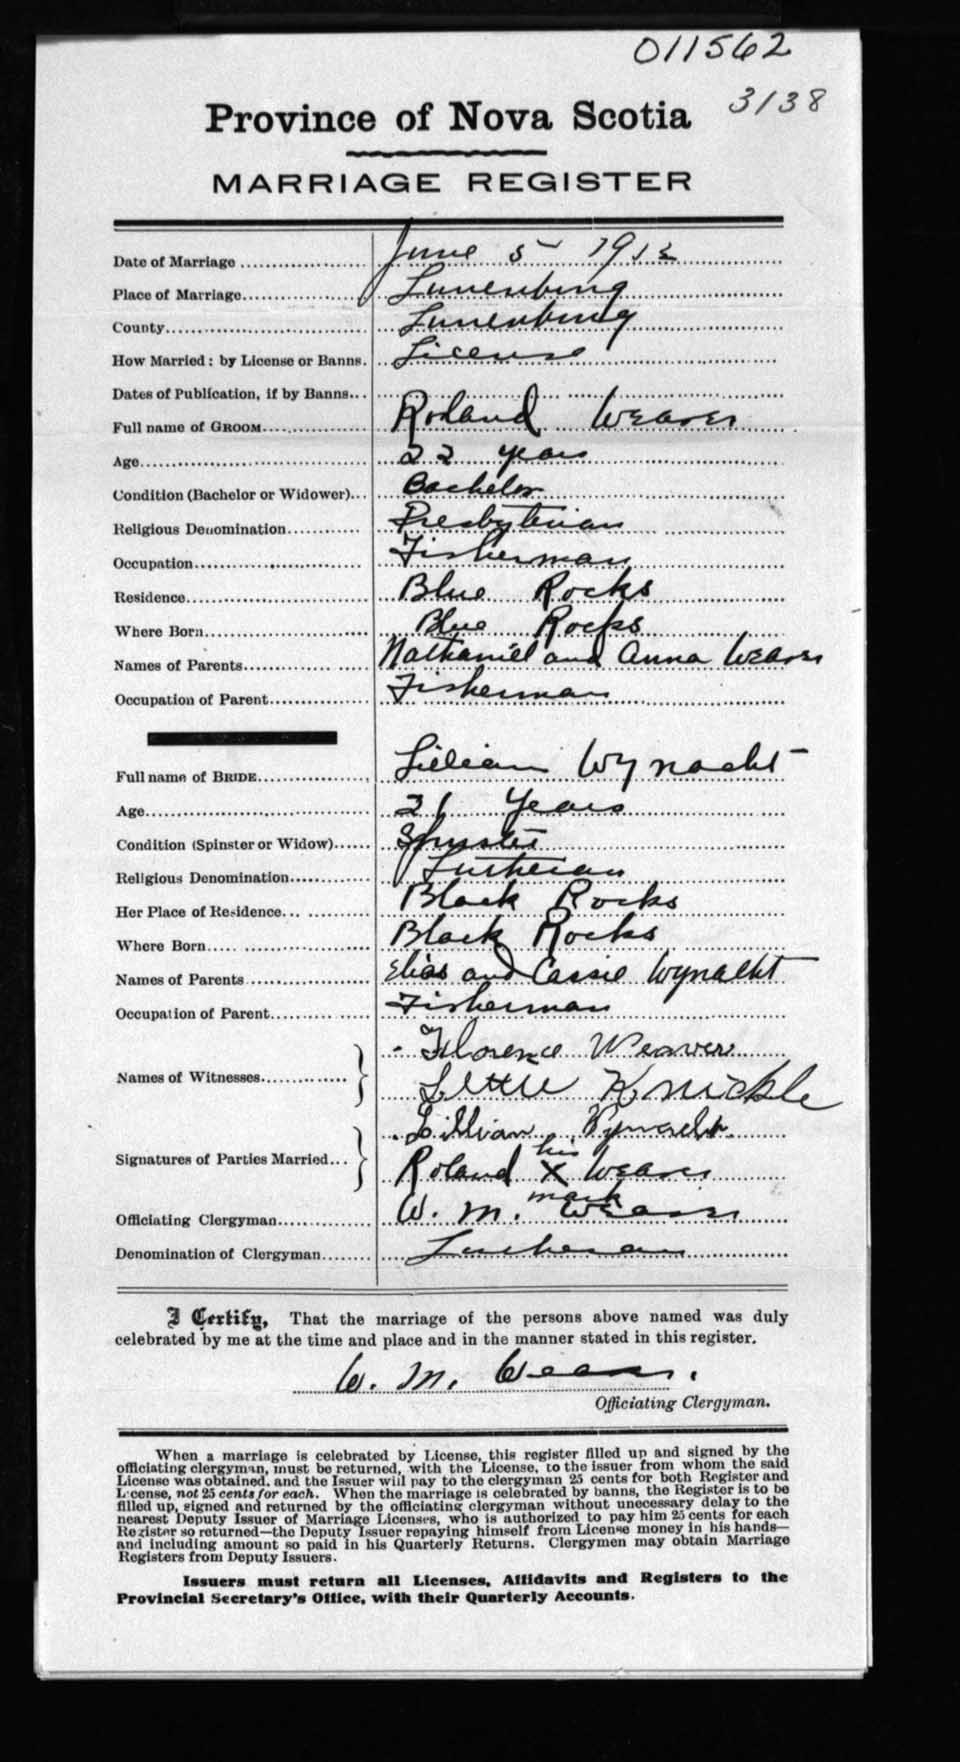 011562
3138
Province of Nova Scotia
MARRIAGE REGISTER
Date of Marriage June 5 - 1912
Place of Marriage Lunenburg
County Lunenburg
How Married: by License or Banns. License
Dates of Publication, if by Banns
Full name of GROOM Roland Weaver
Age 22 years
Condition (Bachelor or Widower) Bachelor
Religious Denomination Presbyterian
Occupation Fisherman
Residence Blue Rocks
Where Born Blue Rocks
Names of Parents Nathaniel and Anna Weaver
Occupation of Parent Fisherman
Full name of BRIDE Lillian Wynacht
Age 21 Years
Condition (Spinster or Widow) Spinster
Religious Denomination Lutheran
Her Place of Residence Black Rocks
Where Born Black Rocks
Names of Parents Elias and Cassie Wynacht
Occupation of Parent Fisherman
Florence Weaver
Names of Witnesses
Lettie Knickle
Lillian Wynacht
his
Signatures of Parties Married Roland X Weaver
mark
Officiating Clergyman W. M. Weaver
Denomination of Clergyman Lutheran
I Certify, That the marriage of the persons above named was duly
celebrated by me at the time and place and in the manner stated in this register.
W. M. Weaver.
Officiating Clergyman.
When a marriage is celebrated by License, this register filled up and signed by the
officiating clergyman, must be returned, with the License, to the issuer from whom the said
License was obtained, and the Issuer will pay to the clergyman 25 cents for both Register and
License, not 25 cents for each. When the marriage is celebrated by banns, the Register is to be
filled up, signed and returned by the officiating clergyman without unnecessary delay to the
nearest Deputy Issuer of Marriage Licenses, who is authorized to pay him 25 cents for each
Register so returned—the Deputy Issuer repaying himself from License money in his hands—
and including amount so paid in his Quarterly Returns. Clergymen may obtain Marriage
Registers from Deputy Issuers.
Issuers must return all Licenses, Affidavits and Registers to the
Provincial Secretary's Office, with their Quarterly Accounts.